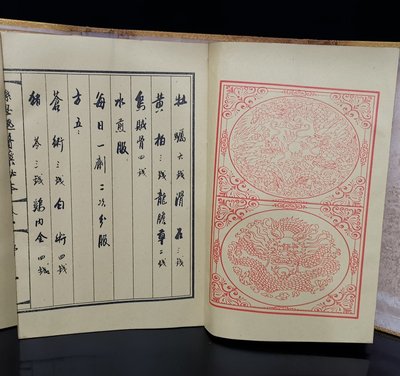 牡蠣六錢滑石三錢
黄柏三錢龍膽草二錢
烏賊骨四錢
水煎服
每日一劑二次分服
方五:
蒼术三錢白术四錢
猪苓三錢鷄内金四錢